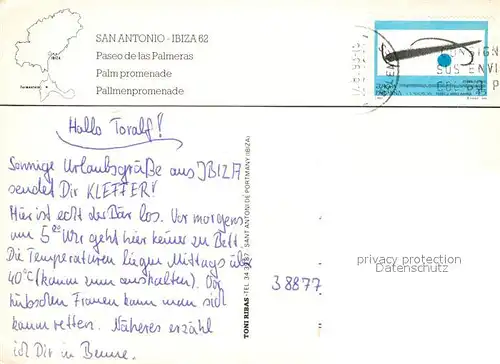 SAN ANTONIO - IBIZA 62
Paseo de las Palmeras
Palm promenade
Pallmenpromenade
Hallo Toralf!
Sonnige Urlaubsgrüße aus IBIZA
sendet Dir KLEFFER!
Hier ist echt der Bär los. Vor morgens
um 5 00 Uhr geht hier keiner zu Bett.
Die Temperaturen liegen Mittags über
40°C (kaum zum aushalten). Vor
hübschen Frauen kann man sich
kaum retten. Näheres erzähl
ich Dir in Beune.
TONI RIBAS - TEL. 34 SANT ANTONI DE PORTMANY (IBIZA)
38877
privacy protection
Datenschutz